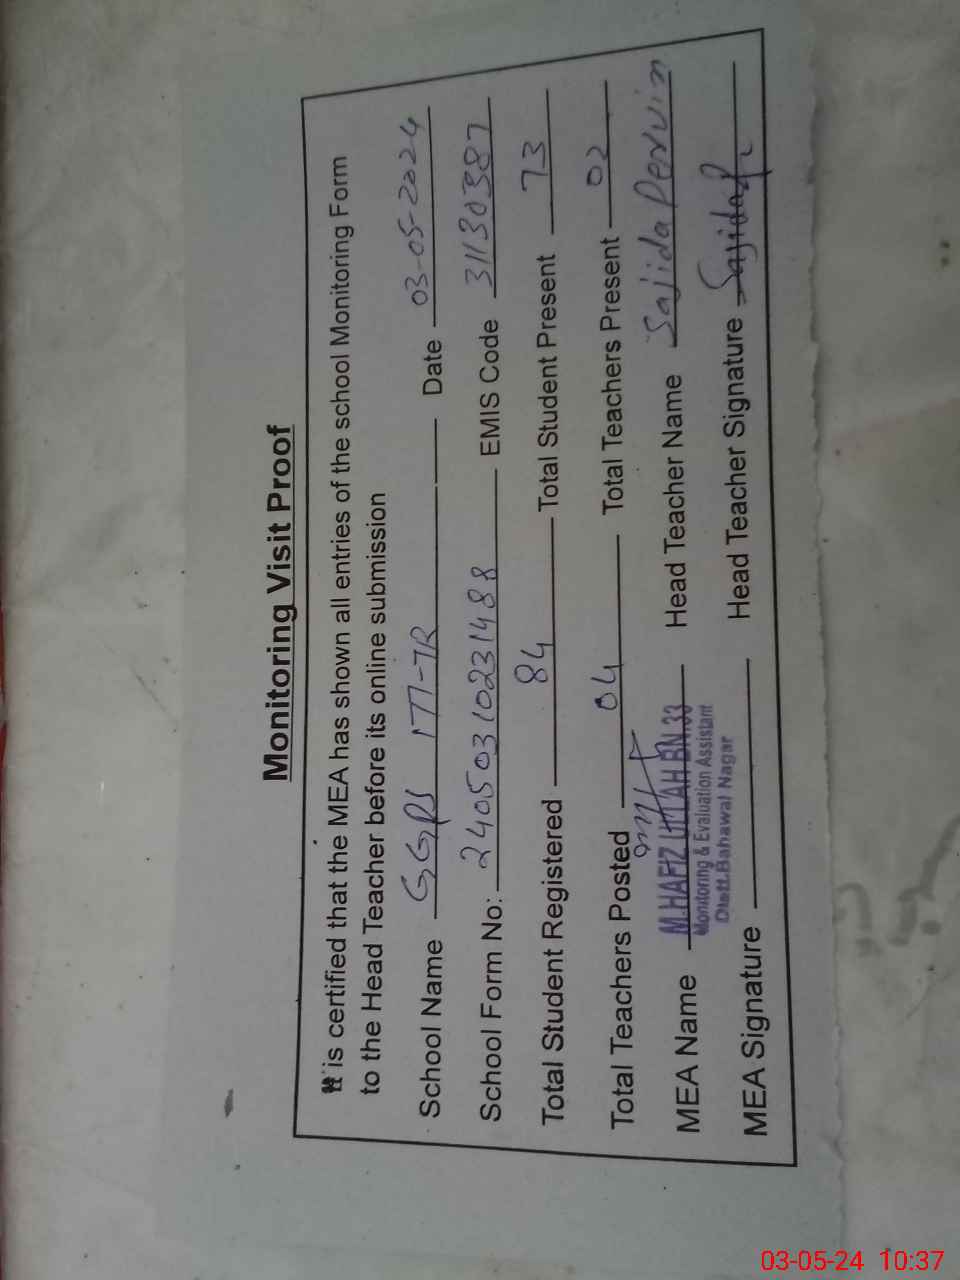 Monitoring Visit Proof
It is certified that the MEA has shown all entries of the school Monitoring Form
to the Head Teacher before its online submission
School Name GGPS 177-7R Date 03-05-2024
School Form No: 24050310231488 EMIS Code 31130387
Total Student Registered 84 Total Student Present 73
Total Teachers Posted 04 Total Teachers Present 02
MEA Name M.HAFIZ ULLAH BN.33 Head Teacher Name Sajida Pervin
Monitoring & Evaluation Assistant
Distt.Bahawal Nagar
MEA Signature Head Teacher Signature Sajida P
03-05-24 10:37